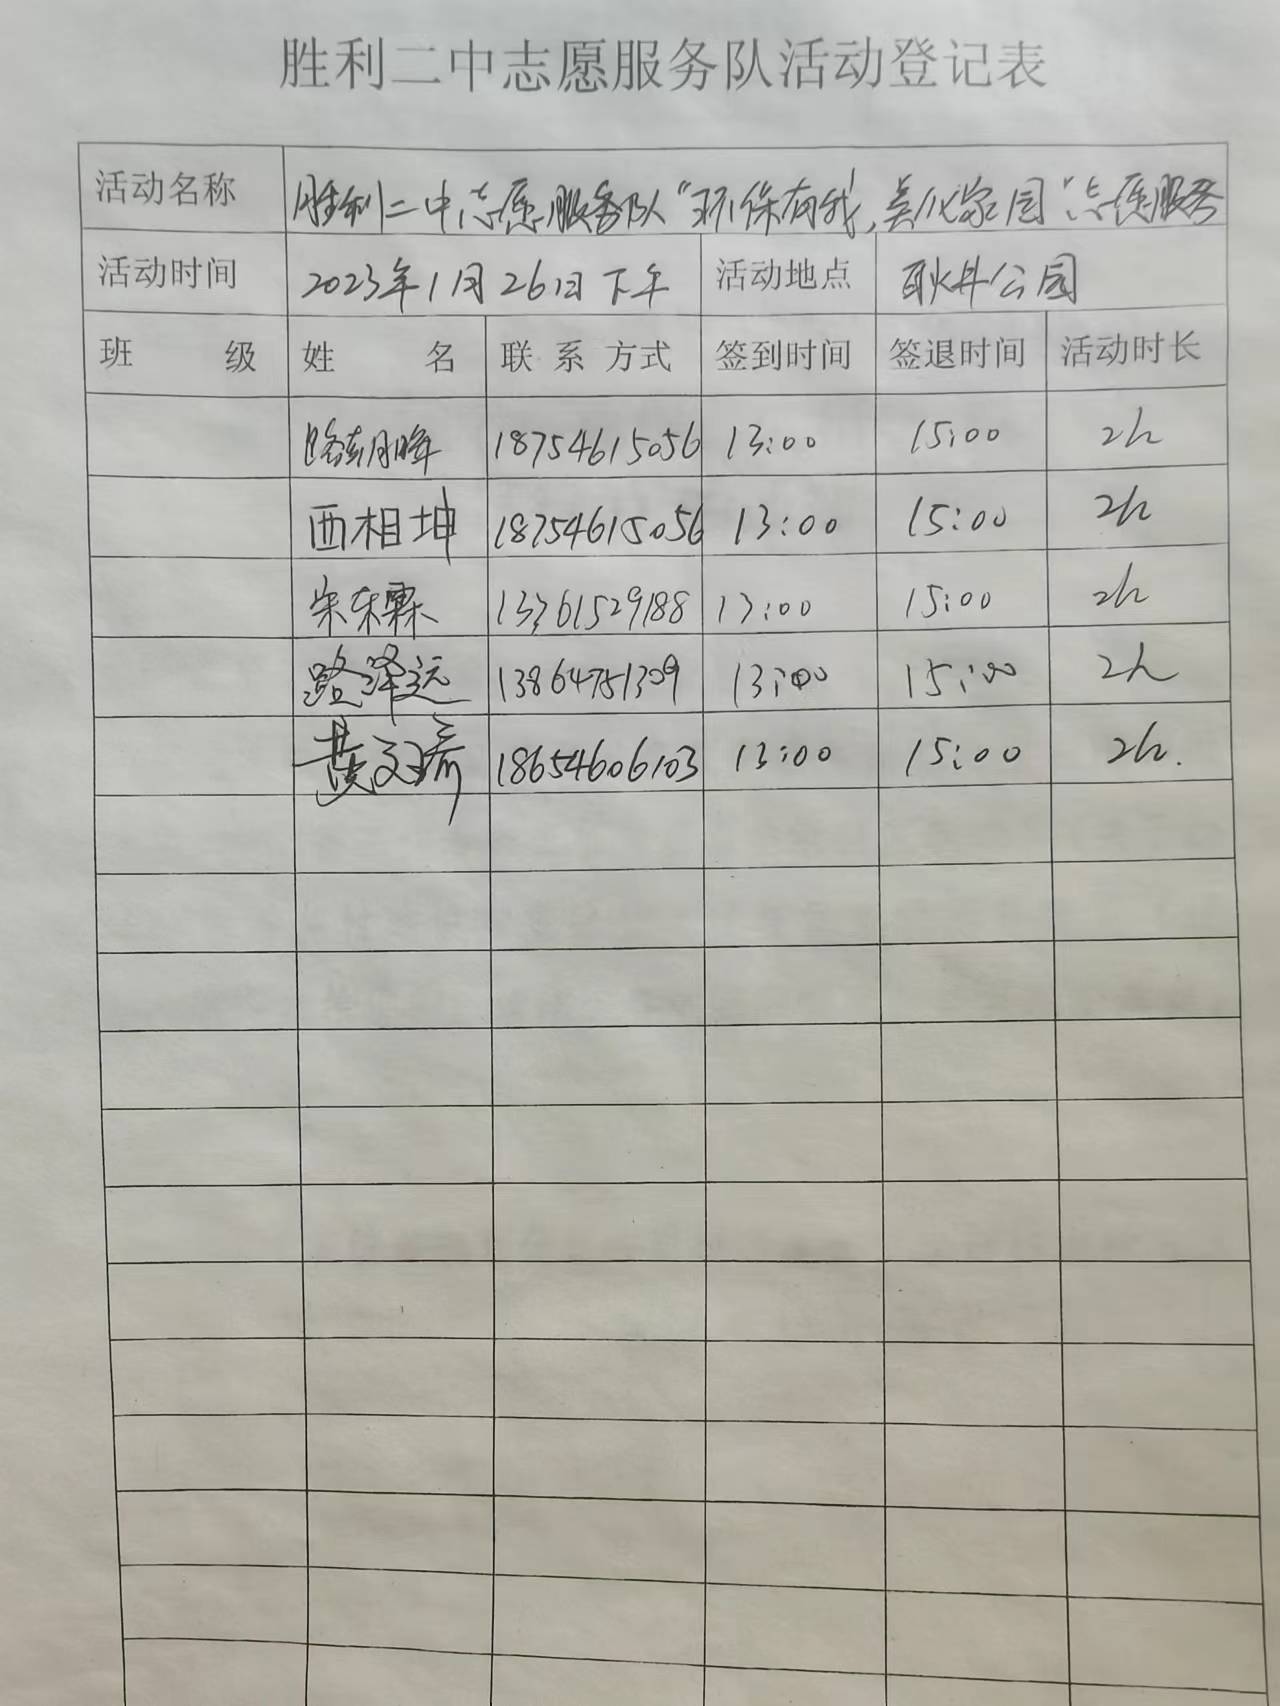 胜利二中志愿服务队活动登记表
活动名称 胜利二中志愿服务队"环保有我,美化家园"志愿服务
活动时间 2023年1月26日下午 活动地点 耿井公园
班 级 姓 名 联系方式 签到时间 签退时间 活动时长
18754615056 13:00 15:00 2h
西相坤 18754615056 13:00 15:00 2h
宋东霖 13361529188 13:00 15:00 2h
路泽远 13864751309 13:00 15:00 2h
黄文 18654606103 13:00 15:00 2h.